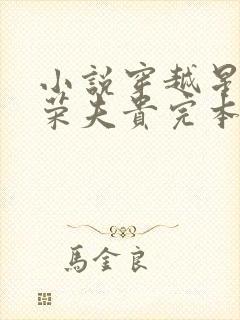 小說穿越星
榮夫貴完本
馬金良